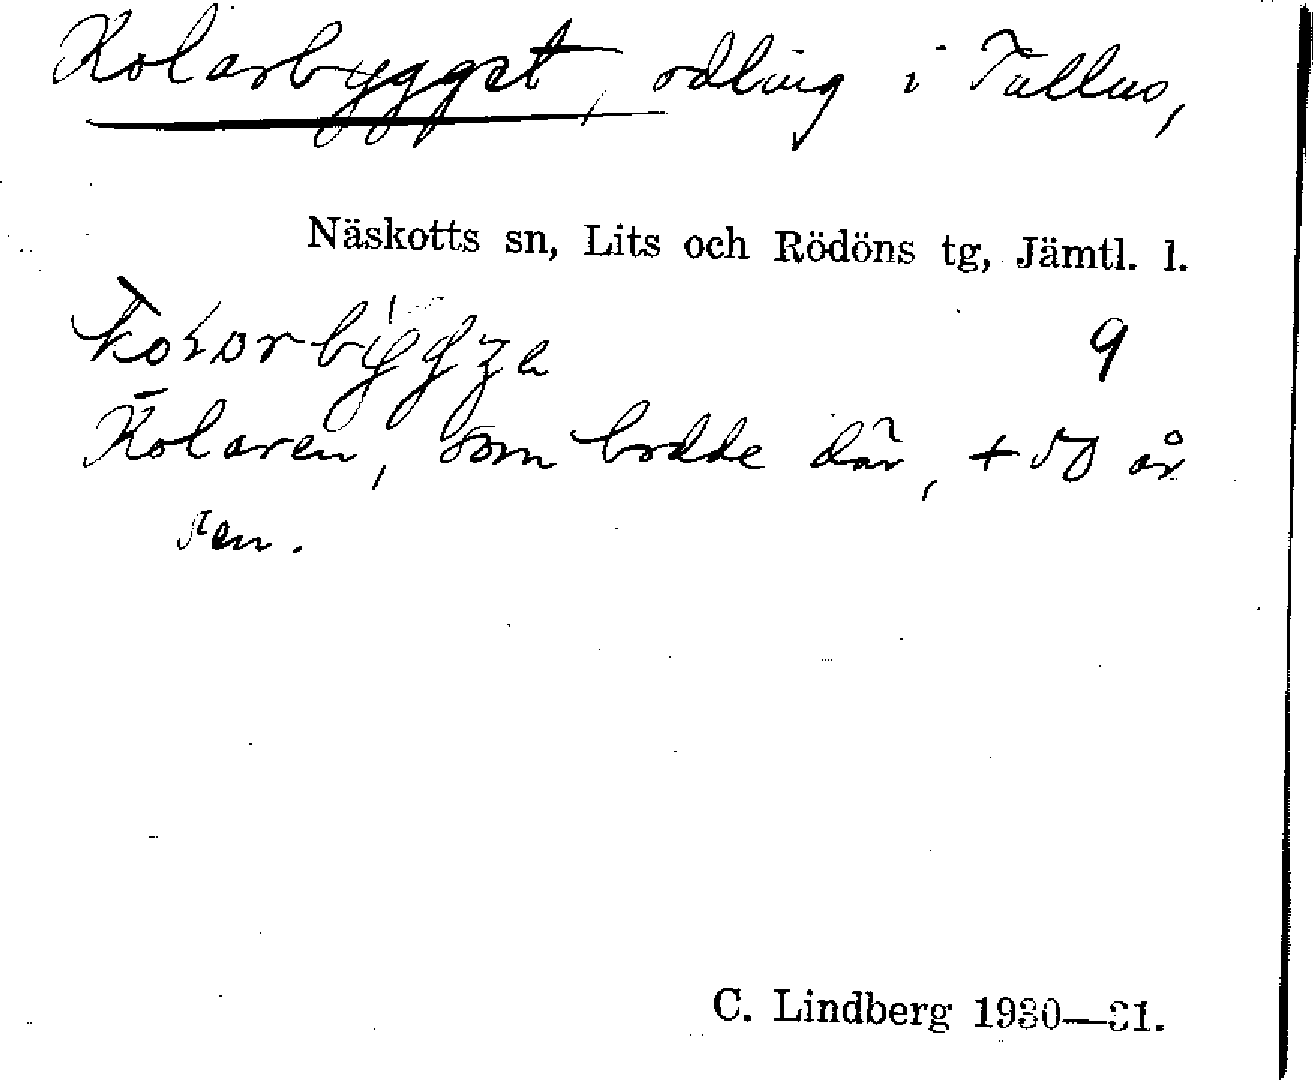 Kolarbygget, odling i Tullus,
Näskotts sn, Lits och Rödöns tg, Jämtl. l.
9
Kolaren, som bodde där, + 50 år
sen.
C. Lindberg 1930—31.